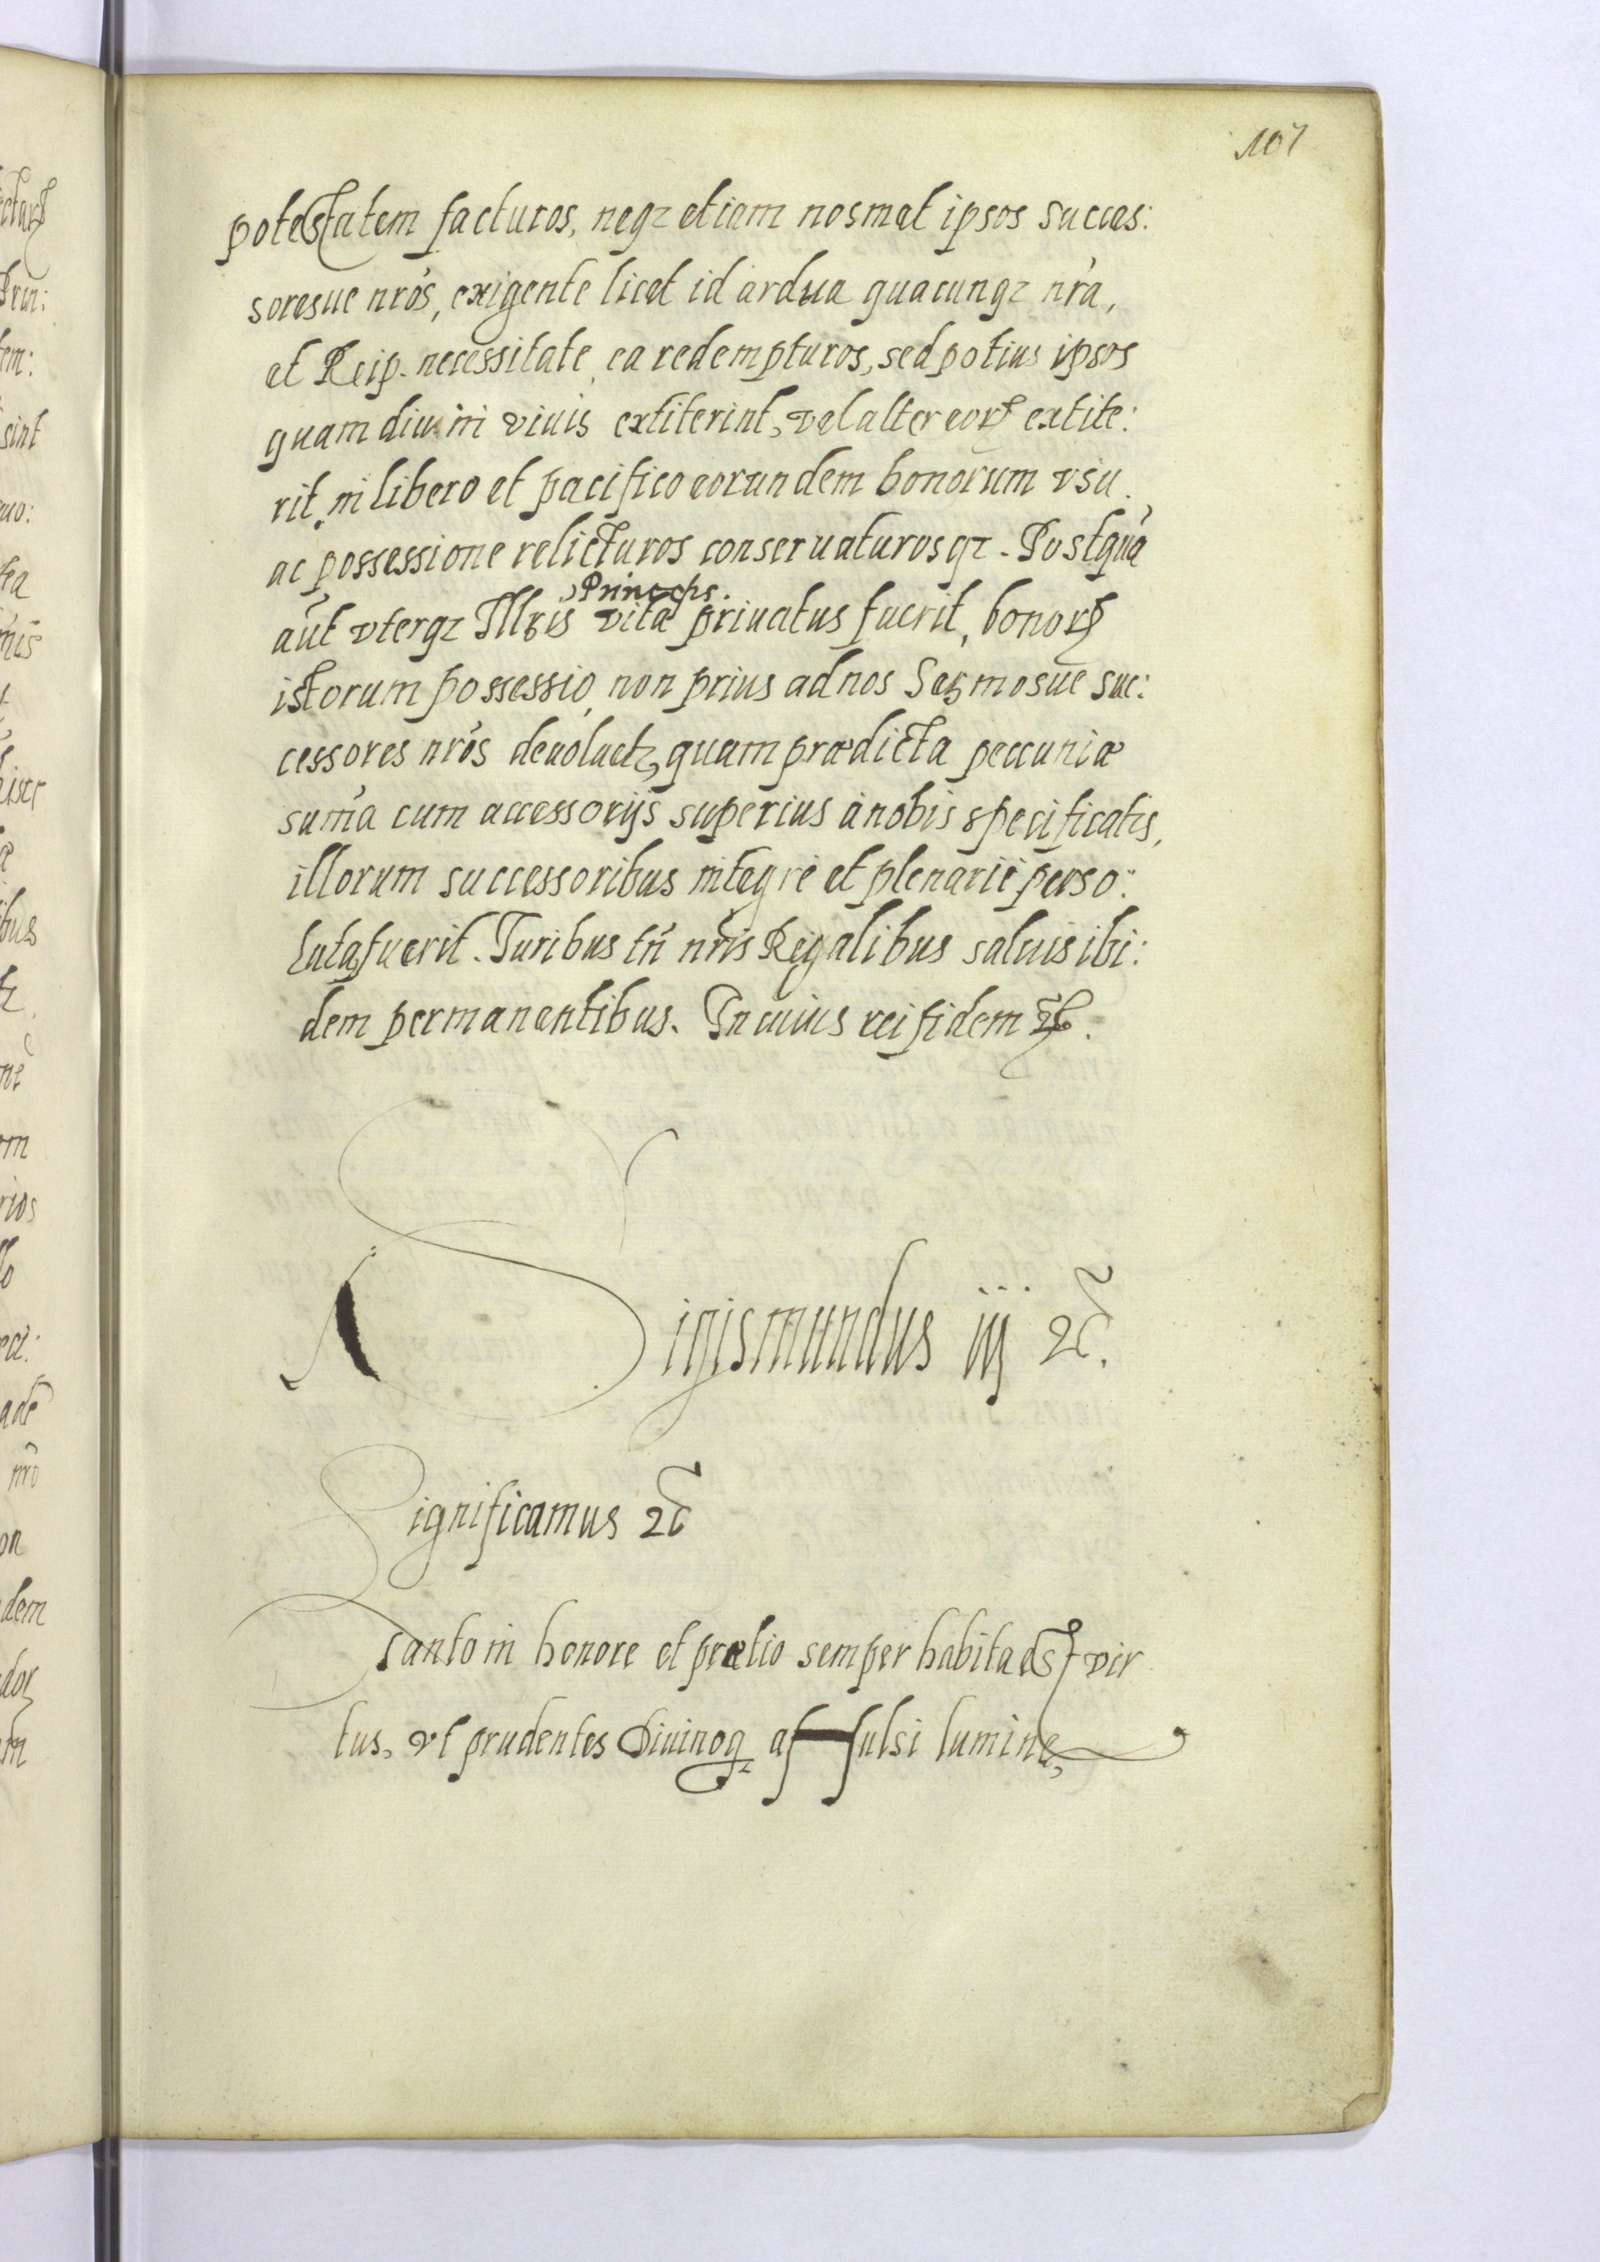 107
potestatem facturos, neqz etiam nosmet ipsos succes:
soresue nrós, exigente licet id ardua quacunqz nrá,
et Reip. necessitate, ea redempturos, sed potius ipsos
quam diu in viuis extiterint, vel alter eorꝝ extite:
rit, in libero et pacifico eorundem bonorum vsu
ac possessione relicturos conseruaturosqz. Postquã
Princeps.
aũt vterqz Illris vita priuatus fuerit, bonorꝝ
istorum possessio, non prius ad nos Sermosue suc:
cessores nrós deuoluetz, quam prædicta peccuniæ
sum̃a cum accessorijs superius à nobis specificatis,
illorum successoribus integrè et plenariè perso:
luta fuerit. Iuribus tñ nrĩs Regalibus saluis ibi:
dem permanentibus. In cuius rei fidem ꝛc̃.
Sigismundus iij ꝛc̃.
Significamus ꝛc̃
Tanto in honore et prætio semper habita est vir
tus, vt prudentes Diuinoqꝫ affulsi lumine,